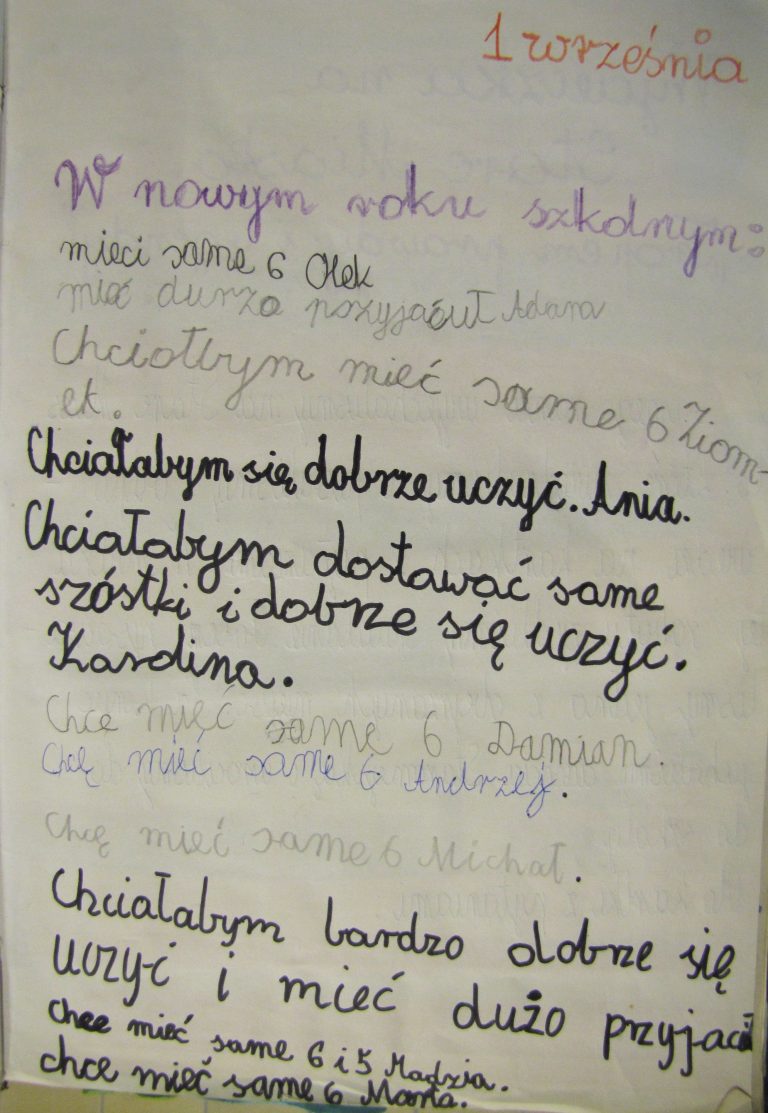 1 września
W nowym roku szkolnym:
mieci same 6 Olek
mieć durzo pszyjaćuł Adam
Chciołbym mieć same 6 Ziom-
ek.
Chciałabym się dobrze uczyć. Ania.
Chciałabym dostawać same
szóstki i dobrze się uczyć.
Karolina.
Chce mieć same 6 Damian.
Chcę mieć same 6 Andrzej.
Chcę mieć same 6 Michał.
Chciałabym bardzo dobrze się
uczyć i mieć dużo przyjaciół
chce mieć same 6 i 5 Madzia.
chce mieć same 6 Marta.